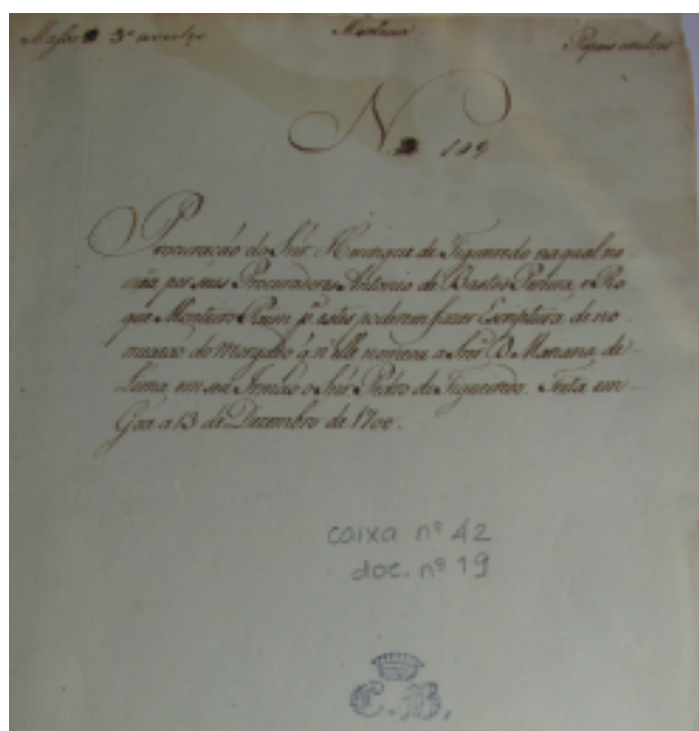 Masso 3º avulço Mantana Papeis avulços
N.º 109
Procuração do Snr. Henrique de Figueiredo na qual no-
mêa por seus Procuradores Antonio de Bastos Pereira, e Ro-
que Monteiro Paim pª. estes poderem fazer Escriptura de no-
meação do Morgado q. n'elle nomeou a Snrª. D. Mariana de
Lima, em seu Irmão o Snr. Pedro de Figueiredo. Feita em
Goa a 13 de Dezembro de 1700.
caixa nº 42
doc. nº 19
C. B.